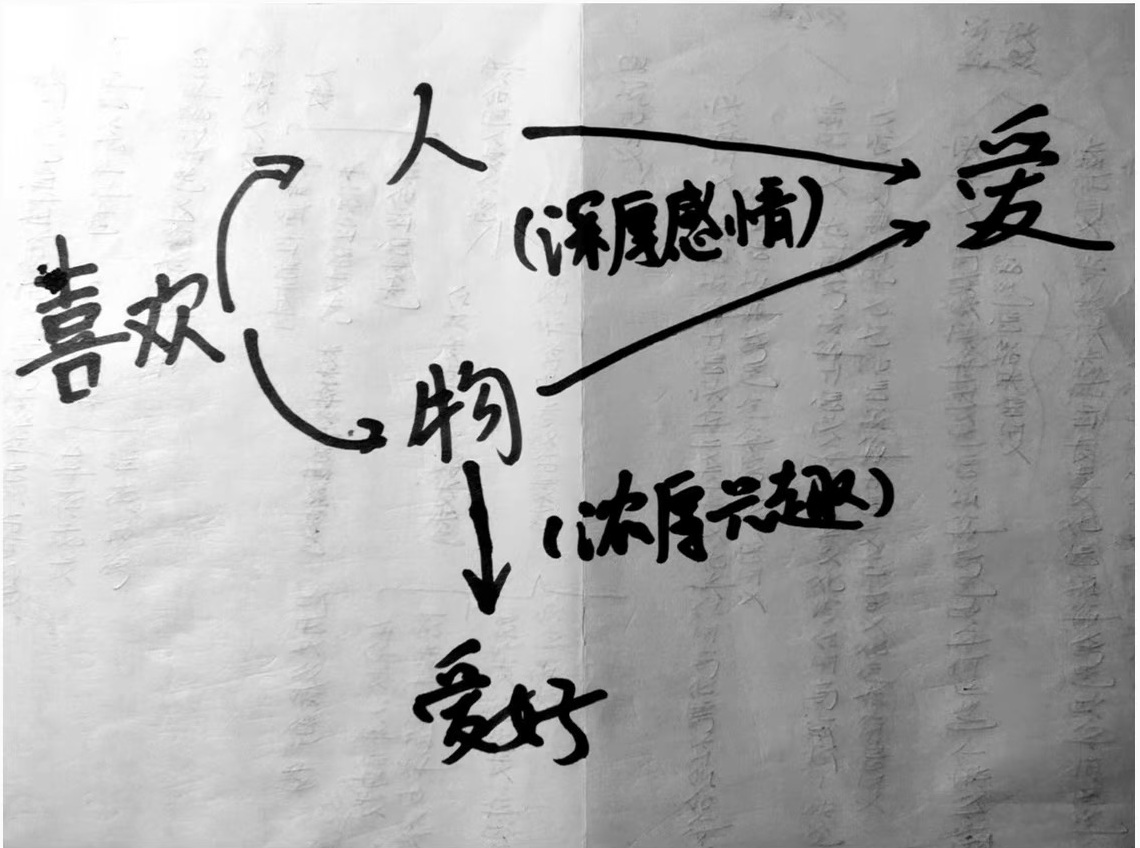 人
爱
(深厚感情)
喜欢
物
(浓厚兴趣)
爱好